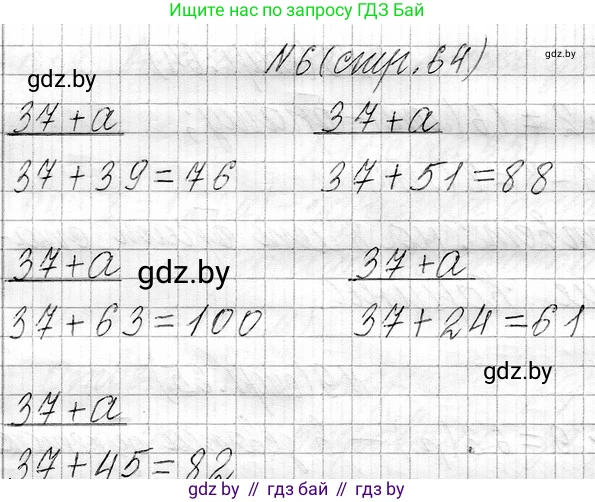 Ищите нас по запросу ГДЗ Бай
N6 (стр. 64)
gdz.by
gdz.by
37+a
37+a
37+39=76
37+51=88
37+a
gdz.by
37+a
37+63=100
37+24=61
gdz.by
37+a
37+45=82
gdz.by // гдз бай // гдз.by